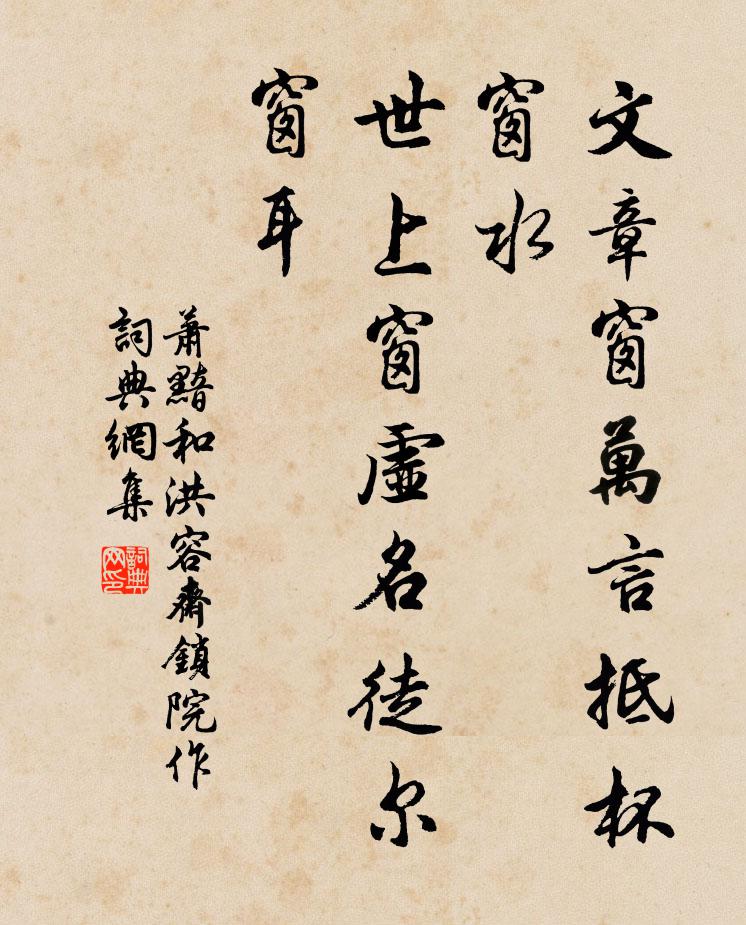 文章窗萬言抵杯
窗水
世上窗虛名徒尔
窗耳
萧黯和洪容齋鎖院作
詞典網集
詞典网印